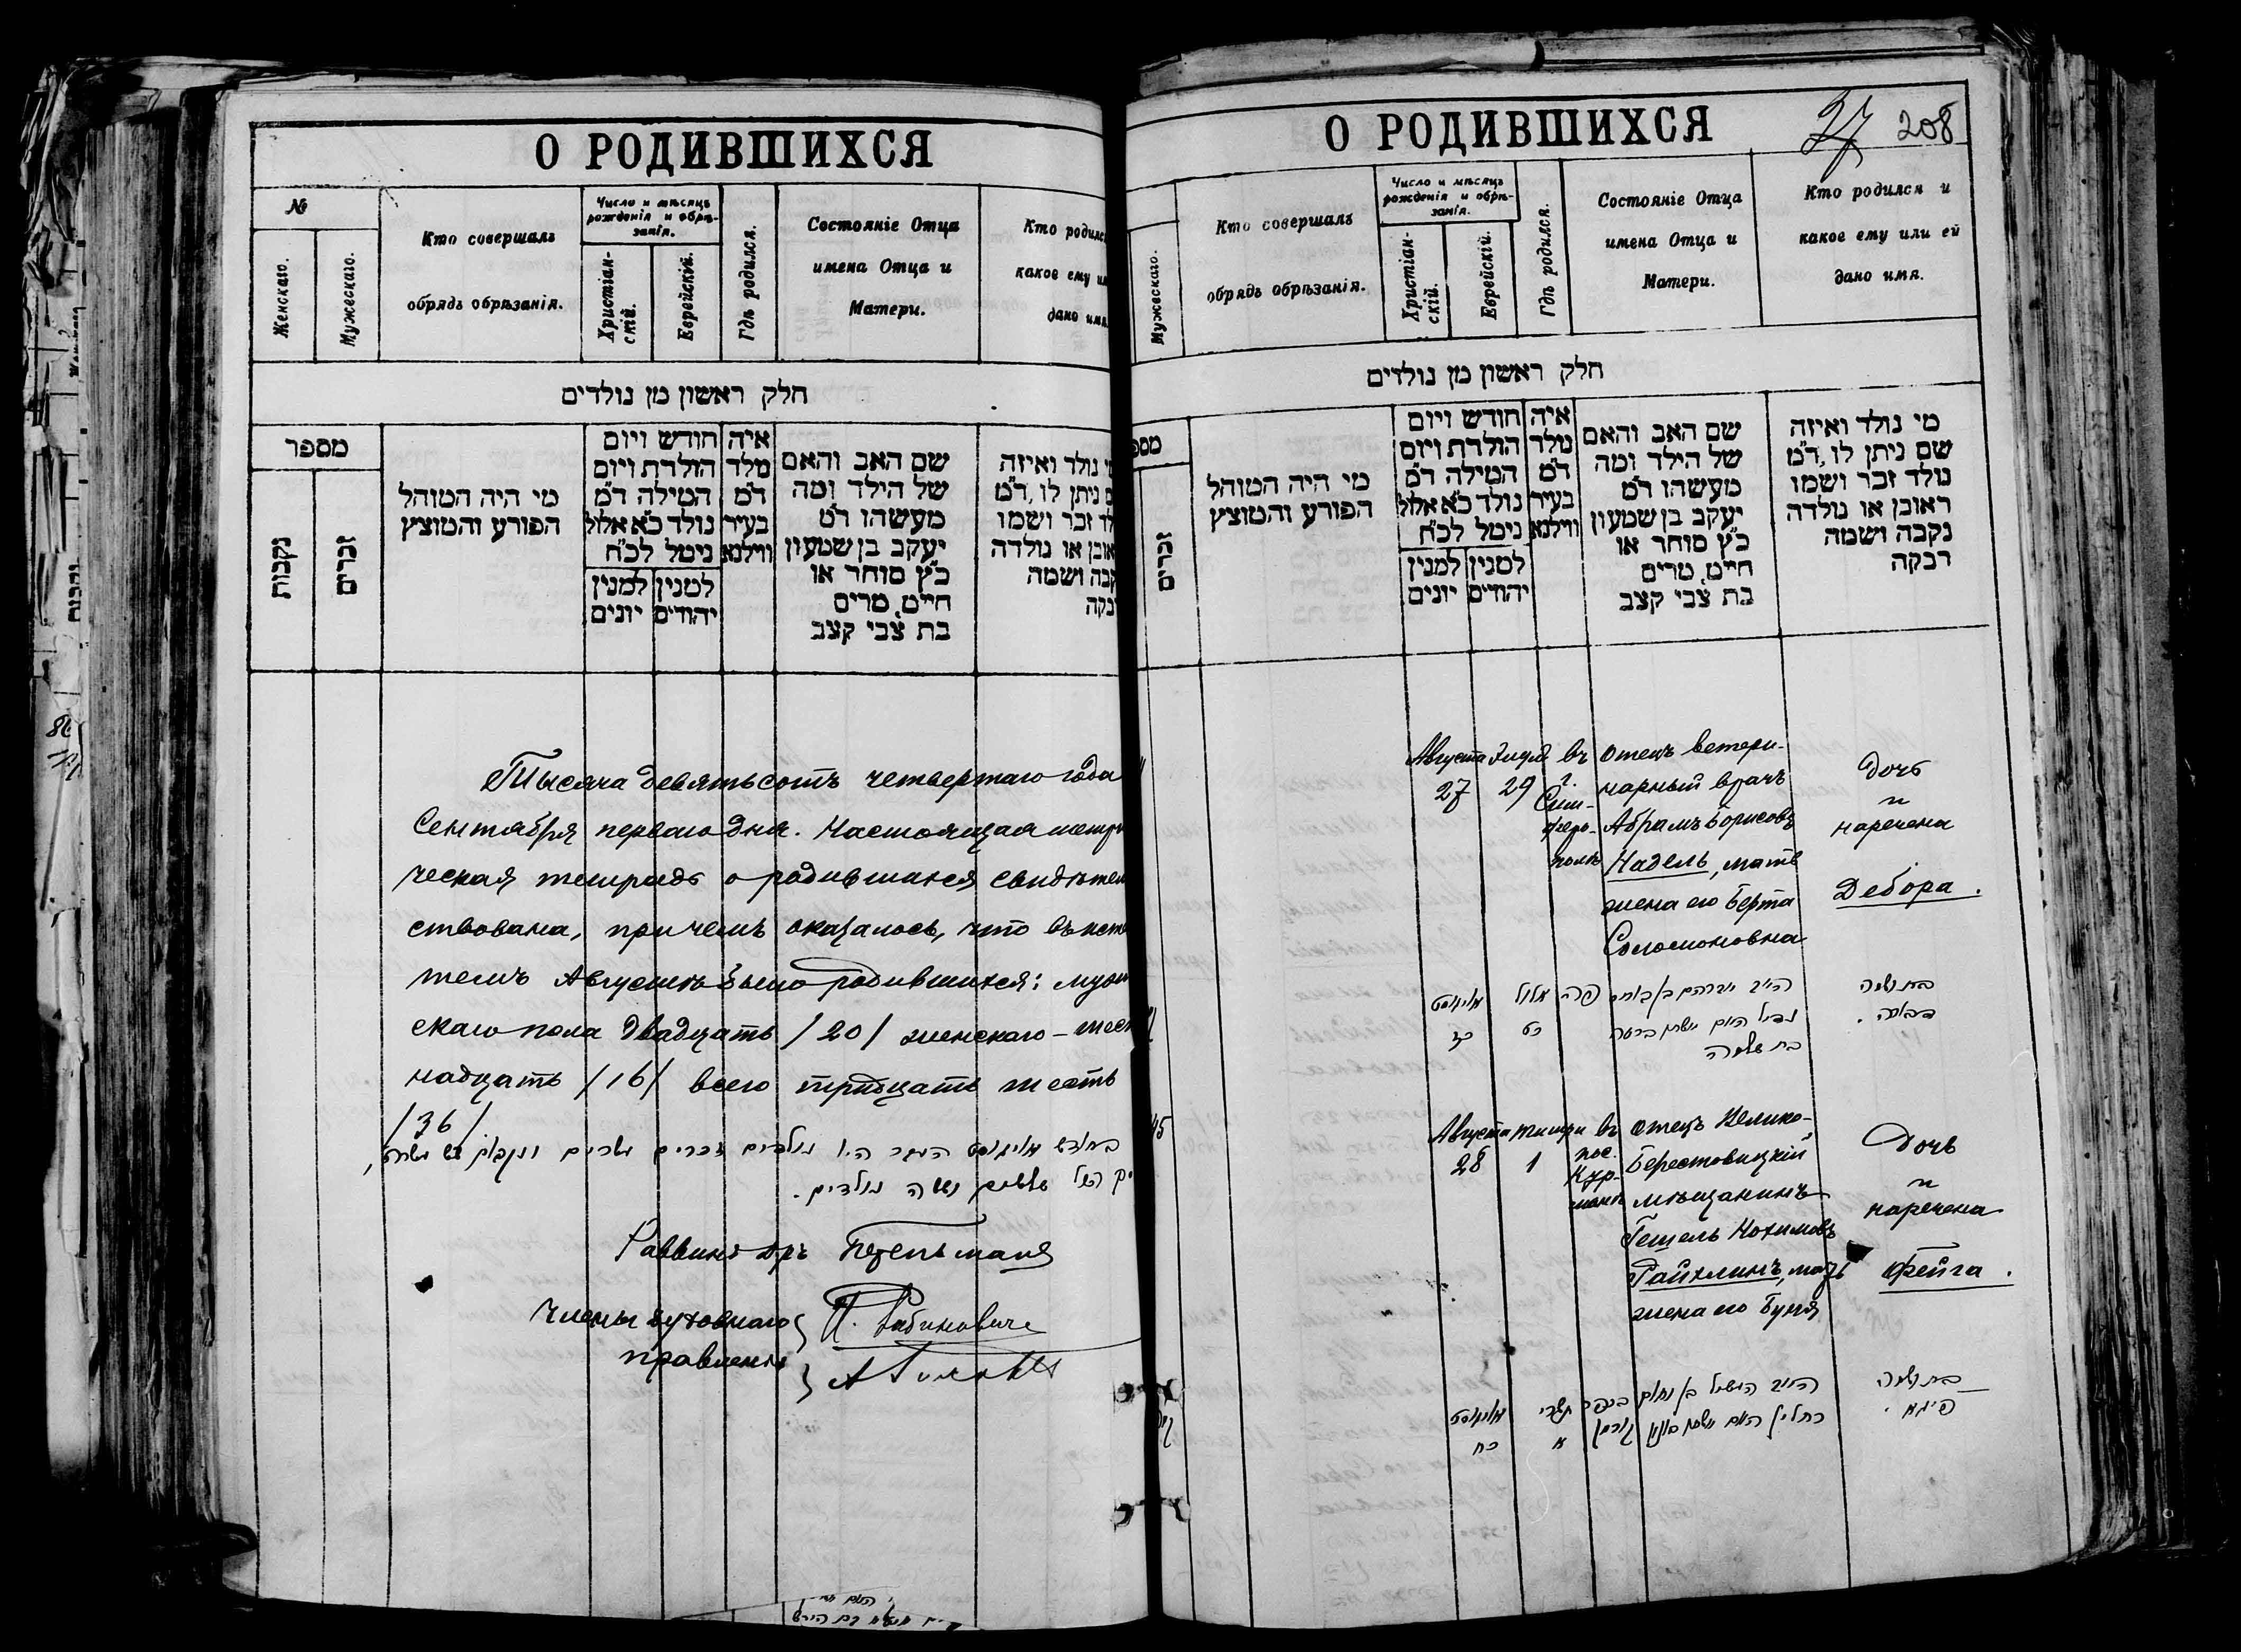 О РОДИВШИХСЯ
№
Женскаго.
Мужескаго.
Кто совершалъ
обрядъ обрѣзанія.
Число и мѣсяцъ
рожденія и обрѣ-
занія.
Христіан-
скій.
Еврейскій.
Гдѣ родился.
Состояніе Отца
имена Отца и
Матери.
Кто родился
какое ему
дано имя
חלק ראשון מן נולדים
מספר
נקבות
זכרים
מי היה המוהל
הפורע והמוצץ
חודש ויום
הולדת ויום
המילה ד"מ
נולד כ"א אלול
נימל לכ"ח
למנין
יונים
למנין
יהודים
איה
נולד
ד"מ
בעיר
ווילנא
שם האב והאם
של הילד ומה
מעשהו ד"מ
יעקב בן שמעון
כ"ץ סוחר או
חייט, מרים
בת צבי קצב
נולד ואיזה
ניתן לו, ד"מ
זכר ושמו
או נולדה
ושמה
Тысяча девятьсотъ четвертаго года
Сентября перваго дня. Настоящая метри
ческая тетрадь о родившихся свидѣтель
ствована, при чемъ оказалось, что въ
текъ Августѣ было родившихся: муж
скаго пола двадцать /20/ женскаго - шест
надцать /16/ всего тридцать шесть
/36/
בחודש אויגוסט העבר היו נולדים זכרים עשרים ונקבות שש עשרה,
הכל שלשים וששה נולדים.
Раввинъ др
Члены духовнаго
правленія
П. Рабиновичъ
О РОДИВШИХСЯ
27 208
Мужескаго.
Кто совершалъ
обрядъ обрѣзанія.
Число и мѣсяцъ
рожденія и обрѣ-
занія.
Христіан-
скій.
Еврейскій.
Гдѣ родился.
Состояніе Отца
имена Отца и
Матери.
Кто родился и
какое ему или ей
дано имя.
חלק ראשון מן נולדים
זכרים
מי היה המוהל
הפורע והמוצץ
חודש ויום
הולדת ויום
המילה ד"מ
נולד כ"א אלול
נימל לכ"ח
למנין
יונים
למנין
יהודים
איה
נולד
ד"מ
בעיר
ווילנא
שם האב והאם
של הילד ומה
מעשהו ד"מ
יעקב בן שמעון
כ"ץ סוחר או
חייט, מרים
בת צבי קצב
מי נולד ואיזה
שם ניתן לו, ד"מ
נולד זכר ושמו
ראובן או נולדה
נקבה ושמה
רבקה
Августа
27
Элула
29
въ
г.
Сим-
феро-
полѣ
Отецъ ветери-
нарный врачъ
Абрамъ Борисовъ
Надель, мать
жена его Берта
Соломоновна
Дочь
и
наречена
Дебора.
אויגוסט
כז
אלול
כט
פה
נדיל
בת שלמה
בת ושמה
דבורה.
45
Августа
28
Тишри
1
въ
пос.
Кур-
манѣ
Отецъ Велико-
Берестовицкій
мѣщанинъ
Гешель Нохимовъ
Райхлинъ, мать
жена его Буня
Дочь
и
наречена
Фейга.
אויגוסט
כח
תשרי
א
קורמן
העשיל בן נחום
רחלין
בת ושמה
פייגא.